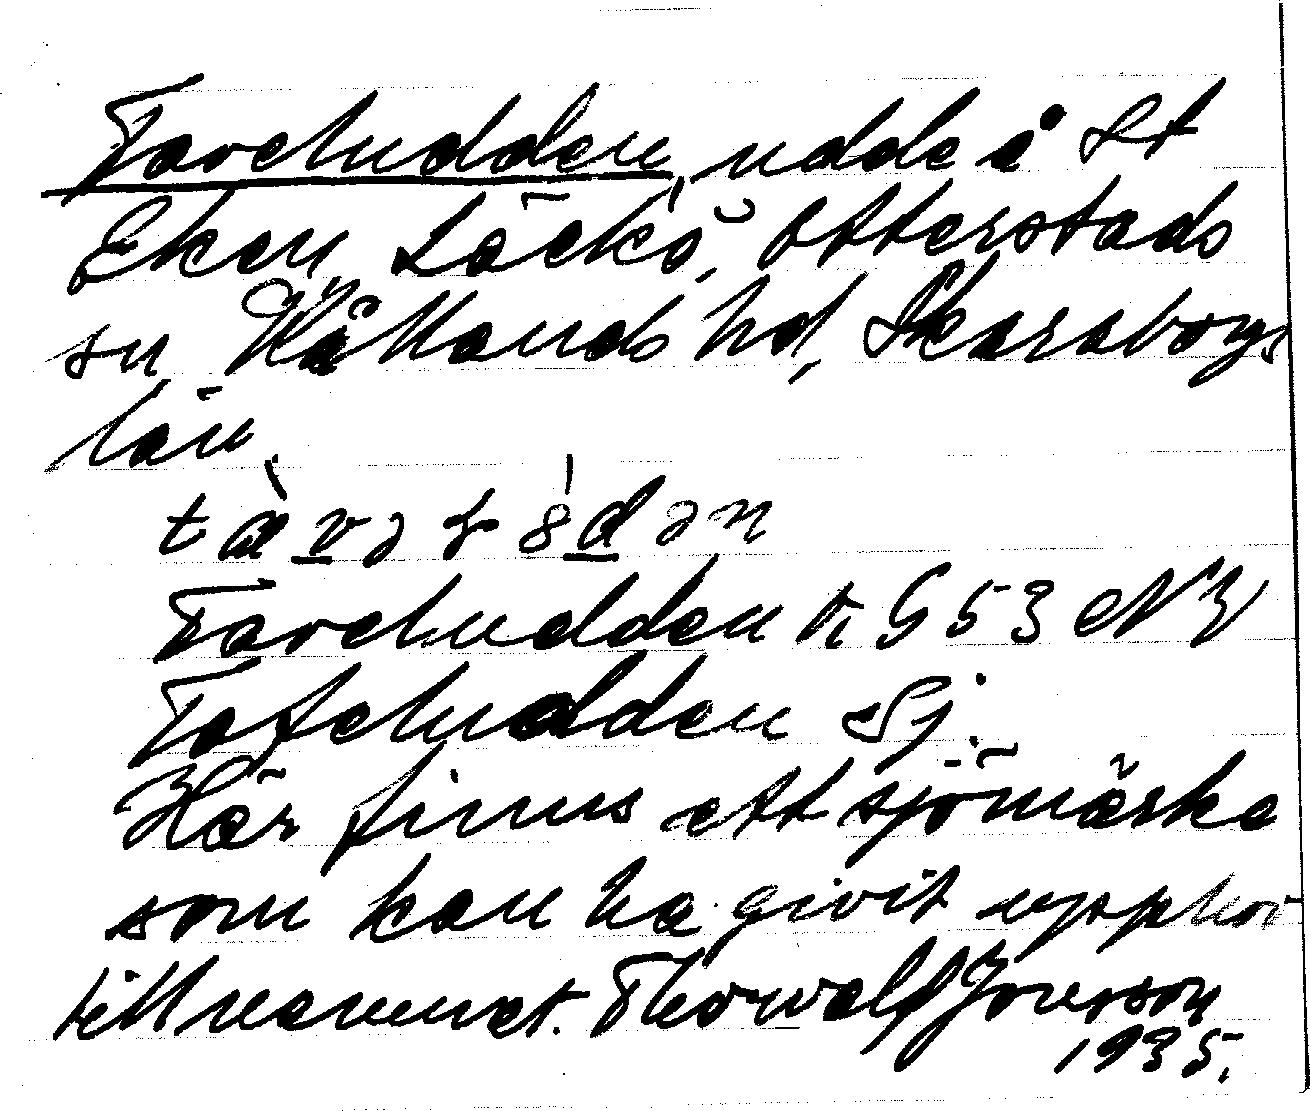 Taveludden, udde å St
Eken, Läckö, Otterstads
sn, Kållands hd, Skaraborgs
län.
Taveludden k G 53 NV
Tafeludden Sj.
Här finns ett sjömärke
som kan ha givit upphov
till namnet. Thorwald Jonsson
1935.